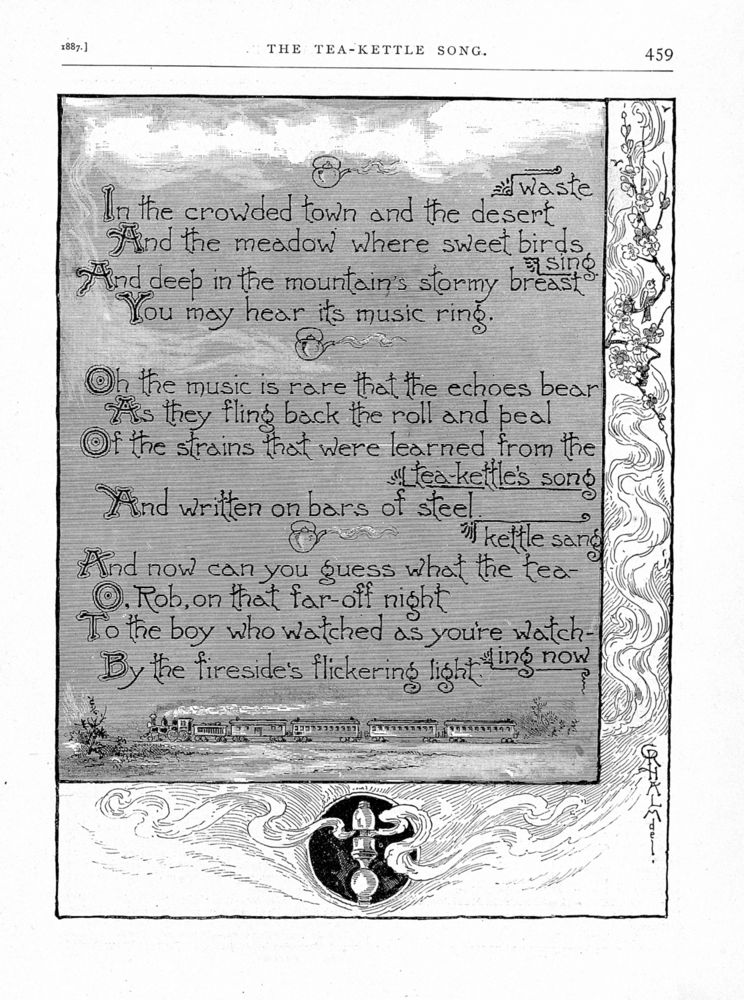 1887.] THE TEA-KETTLE SONG. 459
In the crowded town and the desert waste
And the meadow where sweet birds sing
And deep in the mountain's stormy breast
You may hear its music ring.
Oh the music is rare that the echoes bear
As they fling back the roll and peal
Of the strains that were learned from the
tea-kettle's song
And written on bars of steel.
And now can you guess what the tea-
kettle sang
O, Rob, on that far-off night
To the boy who watched as you're watch-
ing now
By the fireside's flickering light.
GRHALM
del.